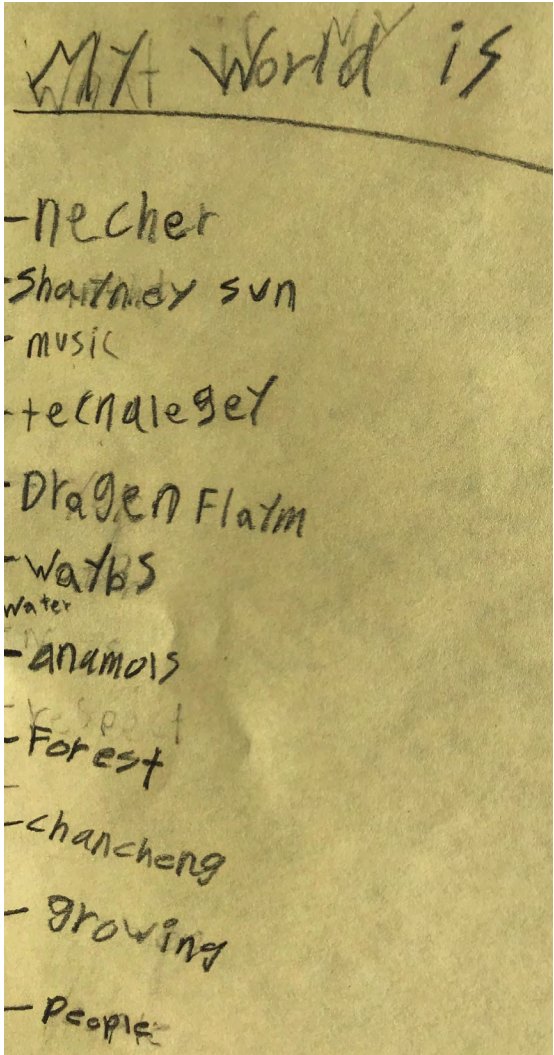 My World is
-necher
-ShaYney sun
-music
-tecnalegeY
-Dragen FlaYm
-WaYbs
Water
-anamols
-respect
-Forest
-chancheng
-growing
-People